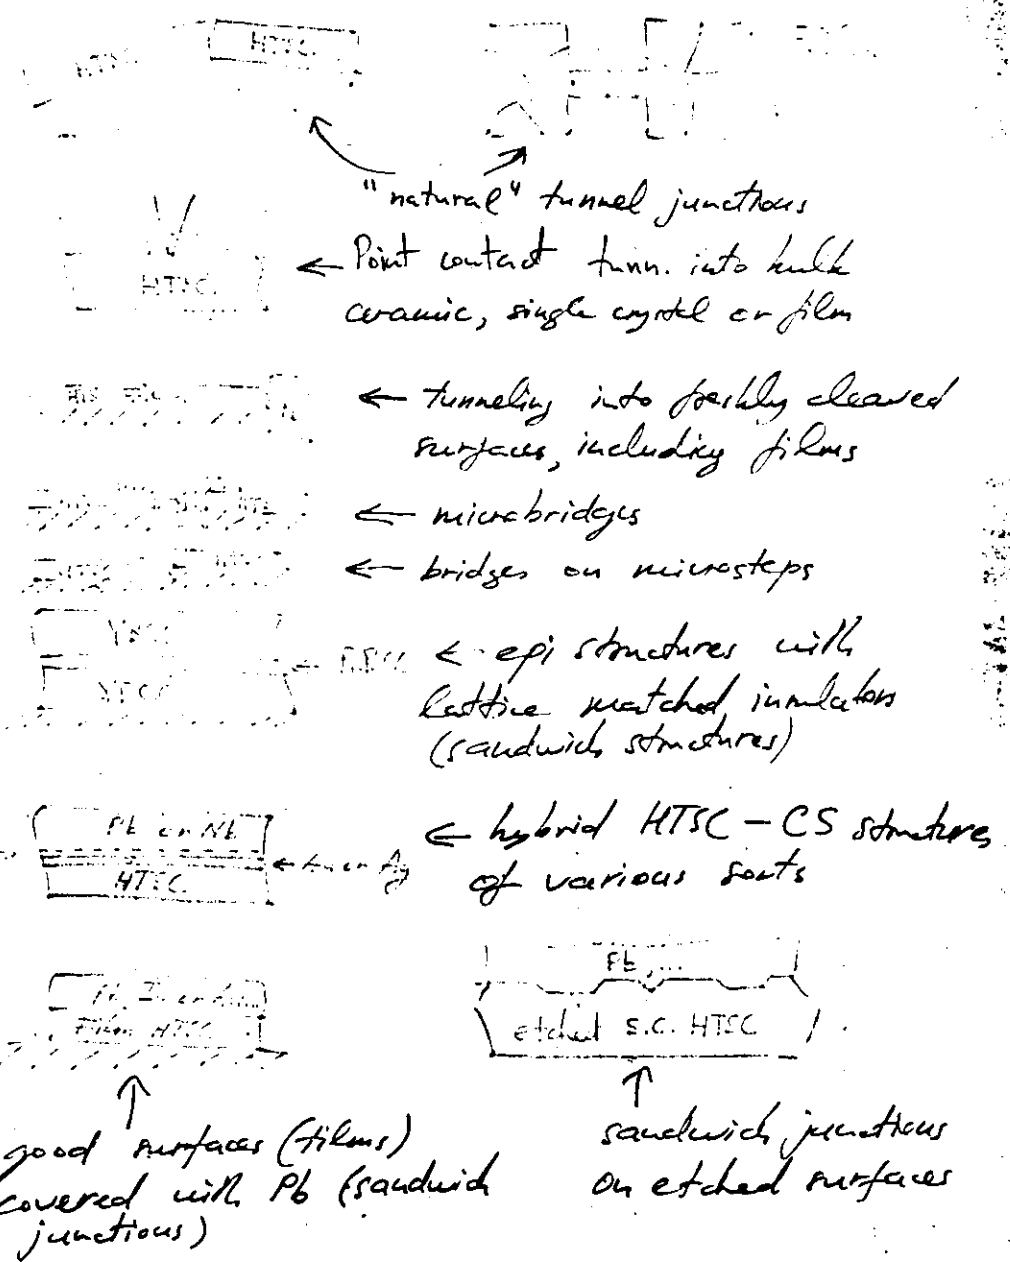 HTSC
HTSC
"natural" tunnel junctions
HTSC
← Point contact tunn. into bulk
ceramic, single crystal or film
← tunneling into freshly cleaved
surfaces, including films
← microbridges
← bridges on microsteps
← epi structures with
lattice matched insulators
(sandwich structures)
Pb or Nb
← Au or Ag
HTSC
← hybrid HTSC – CS structures
of various sorts
Pb,...
etched S.C. HTSC
Film HTSC
good surfaces (films)
covered with Pb (sandwich
junctions)
sandwich junctions
on etched surfaces